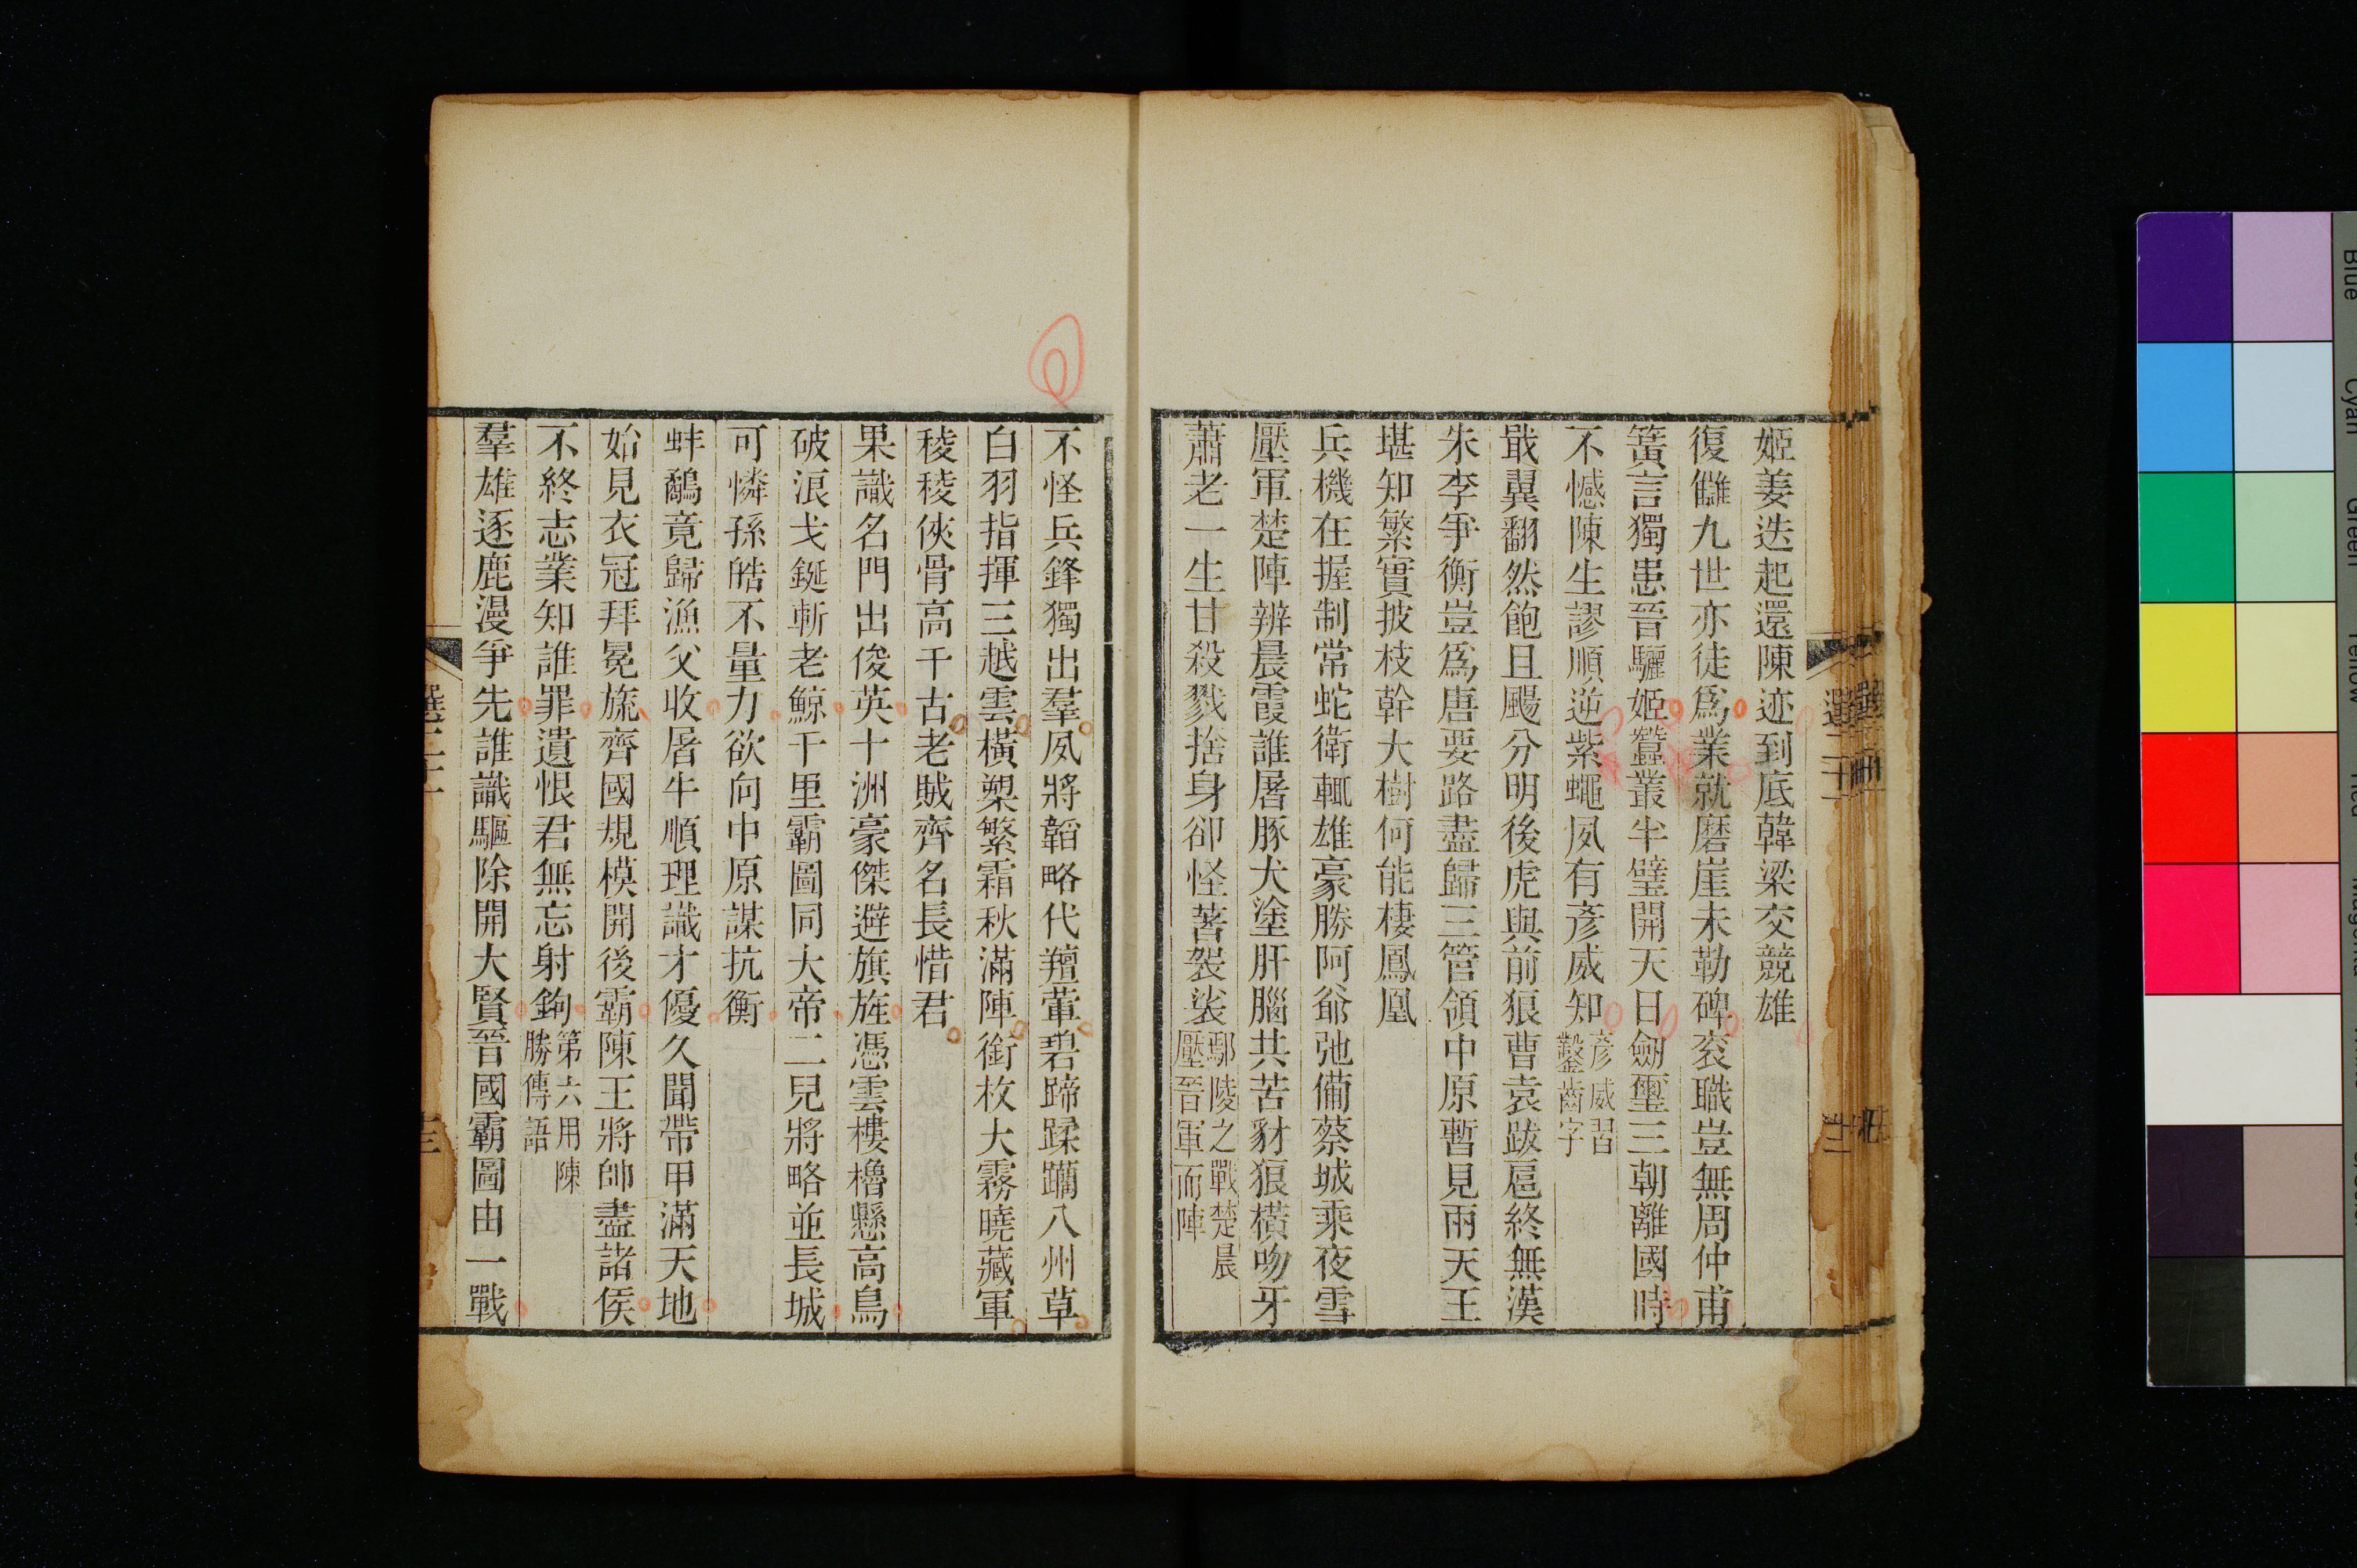 姬姜迭起還陳迹到底韓梁交競雄
復讎九世亦徒爲業就磨崖未勒碑袞職豈無周仲甫
簧言獨患晉驪姬蠶叢半壁開天日劒璽三朝離國時
不憾陳生謬順逆紫蠅夙有彥威知彥威習鑿齒字
戢翼翻然飽且颺分明後虎與前狼曹袁跋扈終無漢
朱李爭衡豈爲唐要路盡歸三管領中原暫見兩天王
堪知繁實披枝幹大樹何能棲鳳凰
兵機在握制常蛇衛輒雄豪勝阿爺弛備蔡城乘夜雪
壓軍楚陣辨晨霞誰屠豚犬塗肝腦共苦豺狼橫吻牙
蕭老一生甘殺戮捨身卻怪著袈裟鄢陵之戰楚晨壓晉軍而陣
不怪兵鋒獨出羣夙將韜略代羶葷碧蹄蹂躪八州草
白羽指揮三越雲橫槊繁霜秋滿陣銜枚大霧曉藏軍
稜稜俠骨高千古老賊齊名長惜君
果識名門出俊英十洲豪傑避旗旌憑雲樓櫓懸高鳥
破浪戈鋋斬老鯨千里霸圖同大帝二兒將略並長城
可憐孫皓不量力欲向中原謀抗衡
蚌鷸竟歸漁父收屠牛順理識才優久聞帶甲滿天地
始見衣冠拜冕旒齊國規模開後霸陳王將帥盡諸侯
不終志業知誰罪遺恨君無忘射鉤第六用陳勝傳語
羣雄逐鹿漫爭先誰識驅除開大賢晉國霸圖由一戰